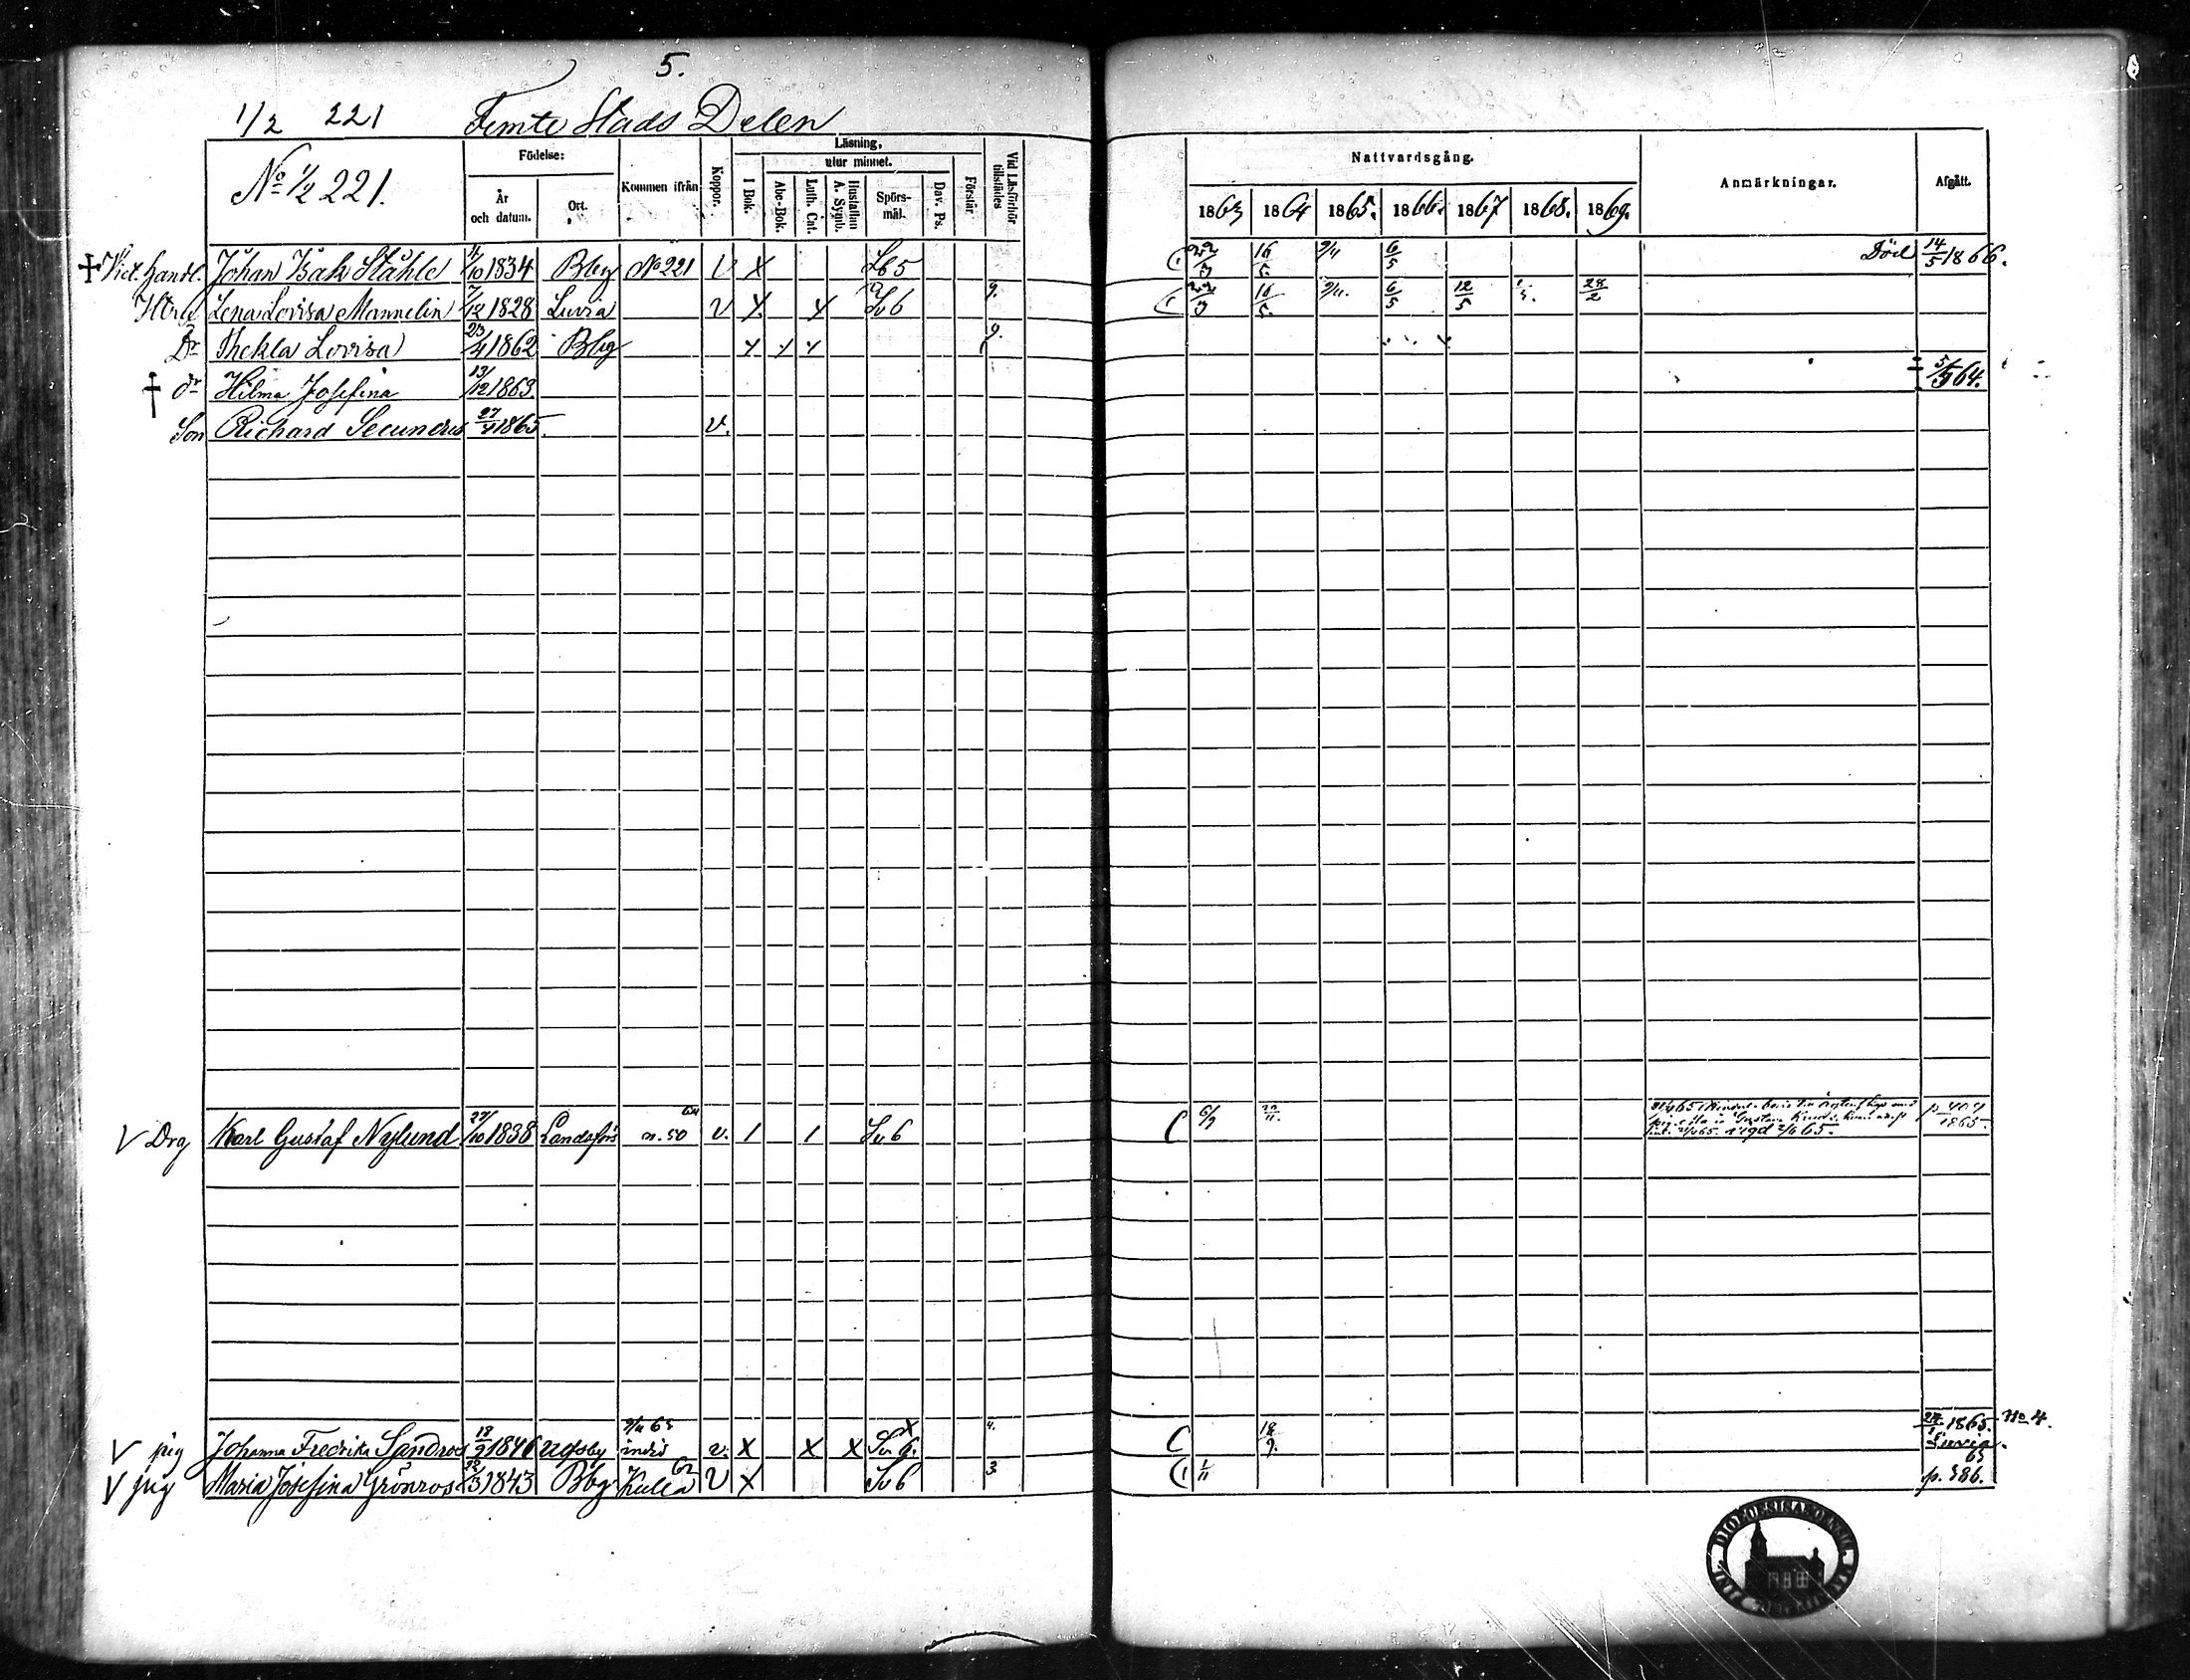 5.
1/2 221 Femte Stads Delen
No 1/2 221.
Födelse:
År och datum.
Ort.
Kommen ifrån
Koppor.
Läsning,
I Bok.
utur minnet.
Abc-Bok.
Luth. Cat.
Hustaflan A. Symb.
Spörs-mål.
Dav. Ps.
Förstår
Vid Läsförhör tillstädes
Nattvardsgång.
1863 1864 1865. 1866. 1867 1868. 1869.
Anmärkningar.
Afgått.
† Vict. handl. Johan Isak Ståhle 4/10 1834 Bbg No 221 V X Sv 5 22/3 16/5 9/4 6/5 Död 14/5 1866.
Lena Lovisa Mannelin 7/12 1828 Luvia V Sv 6 9. 22/3 16/5 6/5 12/5 28/2
Dr Thekla Lovisa 23/4 1862 Bbg 9.
† dr Hilma Josefina 13/12 1863. 5/5 64.
Son Richard Secundus 27/4 1865. v.
V Drg Karl Gustaf Nylund 27/10 1838 n. 50 v. 1 1 Sv 6 C 22/11
vigd
1865.
9/11 63
V pig Johanna Fredrika Sandros 18/9 1846 v. X X X Sv 6. 4. C 18/9. 1865 No 4.
Luvia.
V pig Maria Josefina Grönros 1843 Bbg Kulla 62 V X Sv 6 3 1/11 65
p. 386.